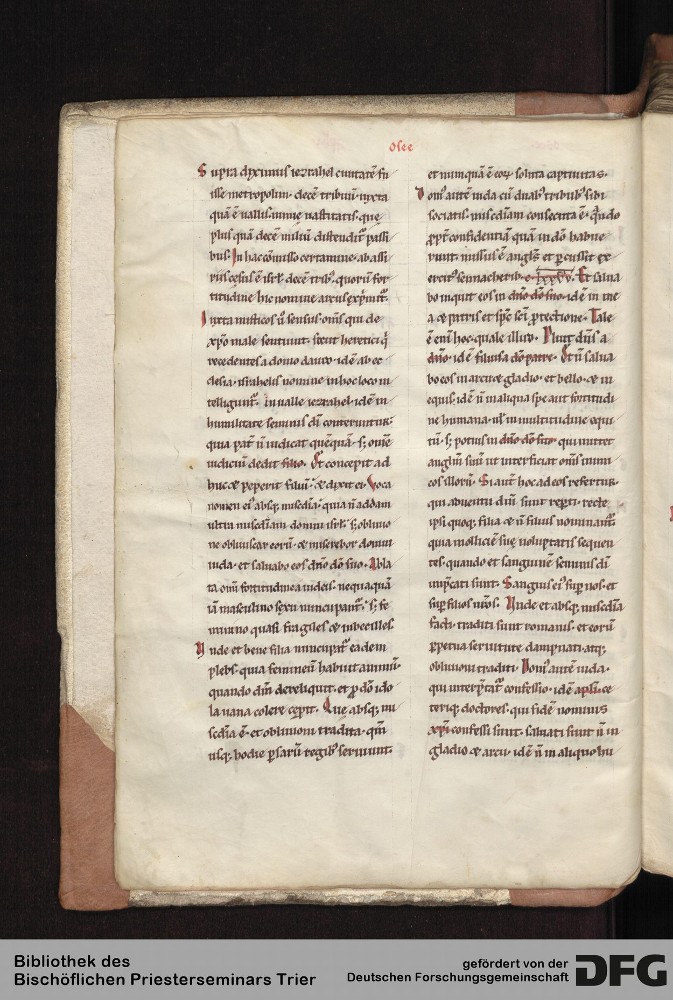 Osee
Supra diximus iezrahel ciuitatē fu
isse metropolim · decē tribuū iuxta
quā ē uallis nimie uastitatis · que
plus quā decē miliū distendit᷑ passi
bus · In hac cōmisso certamine · ab assi
riis cesus ē isrl · decē trib; quorū for
titudinē hic nomine arcus exp̄mit᷑ ·
Iuxta misticos ū sensus · om̄s qui de
xp̄o male sentiunt · sicut heretici q̇
recedentes a domo dauid · idē ab ec
clesia · israhelis nomine in hoc loco in
telligunt᷑ · In ualle iezrahel · idē in
humilitate seminis dī conteruntur ·
quia pat̄ n̄ iudicat quēquā · s; omē
iudiciū dedit filio · Et concepit ad
huc & peperit filiā · & dixit ei · Voca
nomen ei᷒ absq; misc̄dia · quia n̄ addam
ultra misc̄diam domui isrl · s; obliuio
ne obliuiscar eorū · & miserebor domui
iuda · et saluabo eos dn̄o dō suo · Abla
ta omī fortitudine a iudeis · nequaquā
iā masculino sexu nuncupant᷑ · s; fe
minino quasi fragiles & inbecilles
Vnde et bene filia nuncupat᷑ ea dem
plebs · quia femineū habuit animū ·
quando dm̄ dereliquit · et ꝓ dō ido
la uana colere cepit · Que absq; mi
sc̄dia ē · et obliuioni tradita · qm̄
usq; hodie psarū regib; seruiunt ·
et numquā ē eoꝝ soluta captiuitas ·
Dom᷒ autē iuda cū duab᷒ tribub᷒ sibi
sociatis · misc̄diam consecuta ē · q̄ndo
ꝓpt᷑ confidentiā quā in dō habue
runt · missus ē angls̄ et pcussit ex
ercitū sennacherib · c · lxxxv · Et salua
bo inquit eos in dn̄o dō suo · idē in me
a & patris et sp̄c sc̄i ꝓtectione · Tale
ē enī hoc · quale illud · Pluit dn̄s a
dn̄o · idē filius a dō patre · Et n̄ salua
bo eos in arcu & gladio · et bello · & in
equis · idē n̄ in aliqua spe aut fortitudi
ne humana · nl̄ in multitudine equi
tū · s; potius in dn̄o dō suo · qui mittet
anglm̄ suū ut interficiat om̄s inimi
cos illorū · Si aut̄ hoc ad eos refertur
qui aduentu dn̄i sunt reperti · recte
ipsi quoq; filia & n̄ filius nominant᷑
quia molliciē sue uoluptatis sequen
tes · quando et sanguinē seminis dī
inp̄cati sunt · Sanguis ei᷒ sup nos · et
sup filios nr̄os · Vnde et absq; misc̄dia
facti · traditi sunt romanis · et eorū
ppetua seruitute dampnati · atq;
obliuioni traditi · Dom᷒ autē iuda ·
qui interp̄tat᷑ confessio · idē apl̄i · ce
teriq; doctores · qui fidē nominis
xp̄i confessi sunt · saluati sunt n̄ in
gladio & arcu · idē n̄ in aliquo hu
Bibliothek des
Bischöflichen Priesterseminars Trier
gefördert von der
Deutschen Forschungsgemeinschaft
DFG